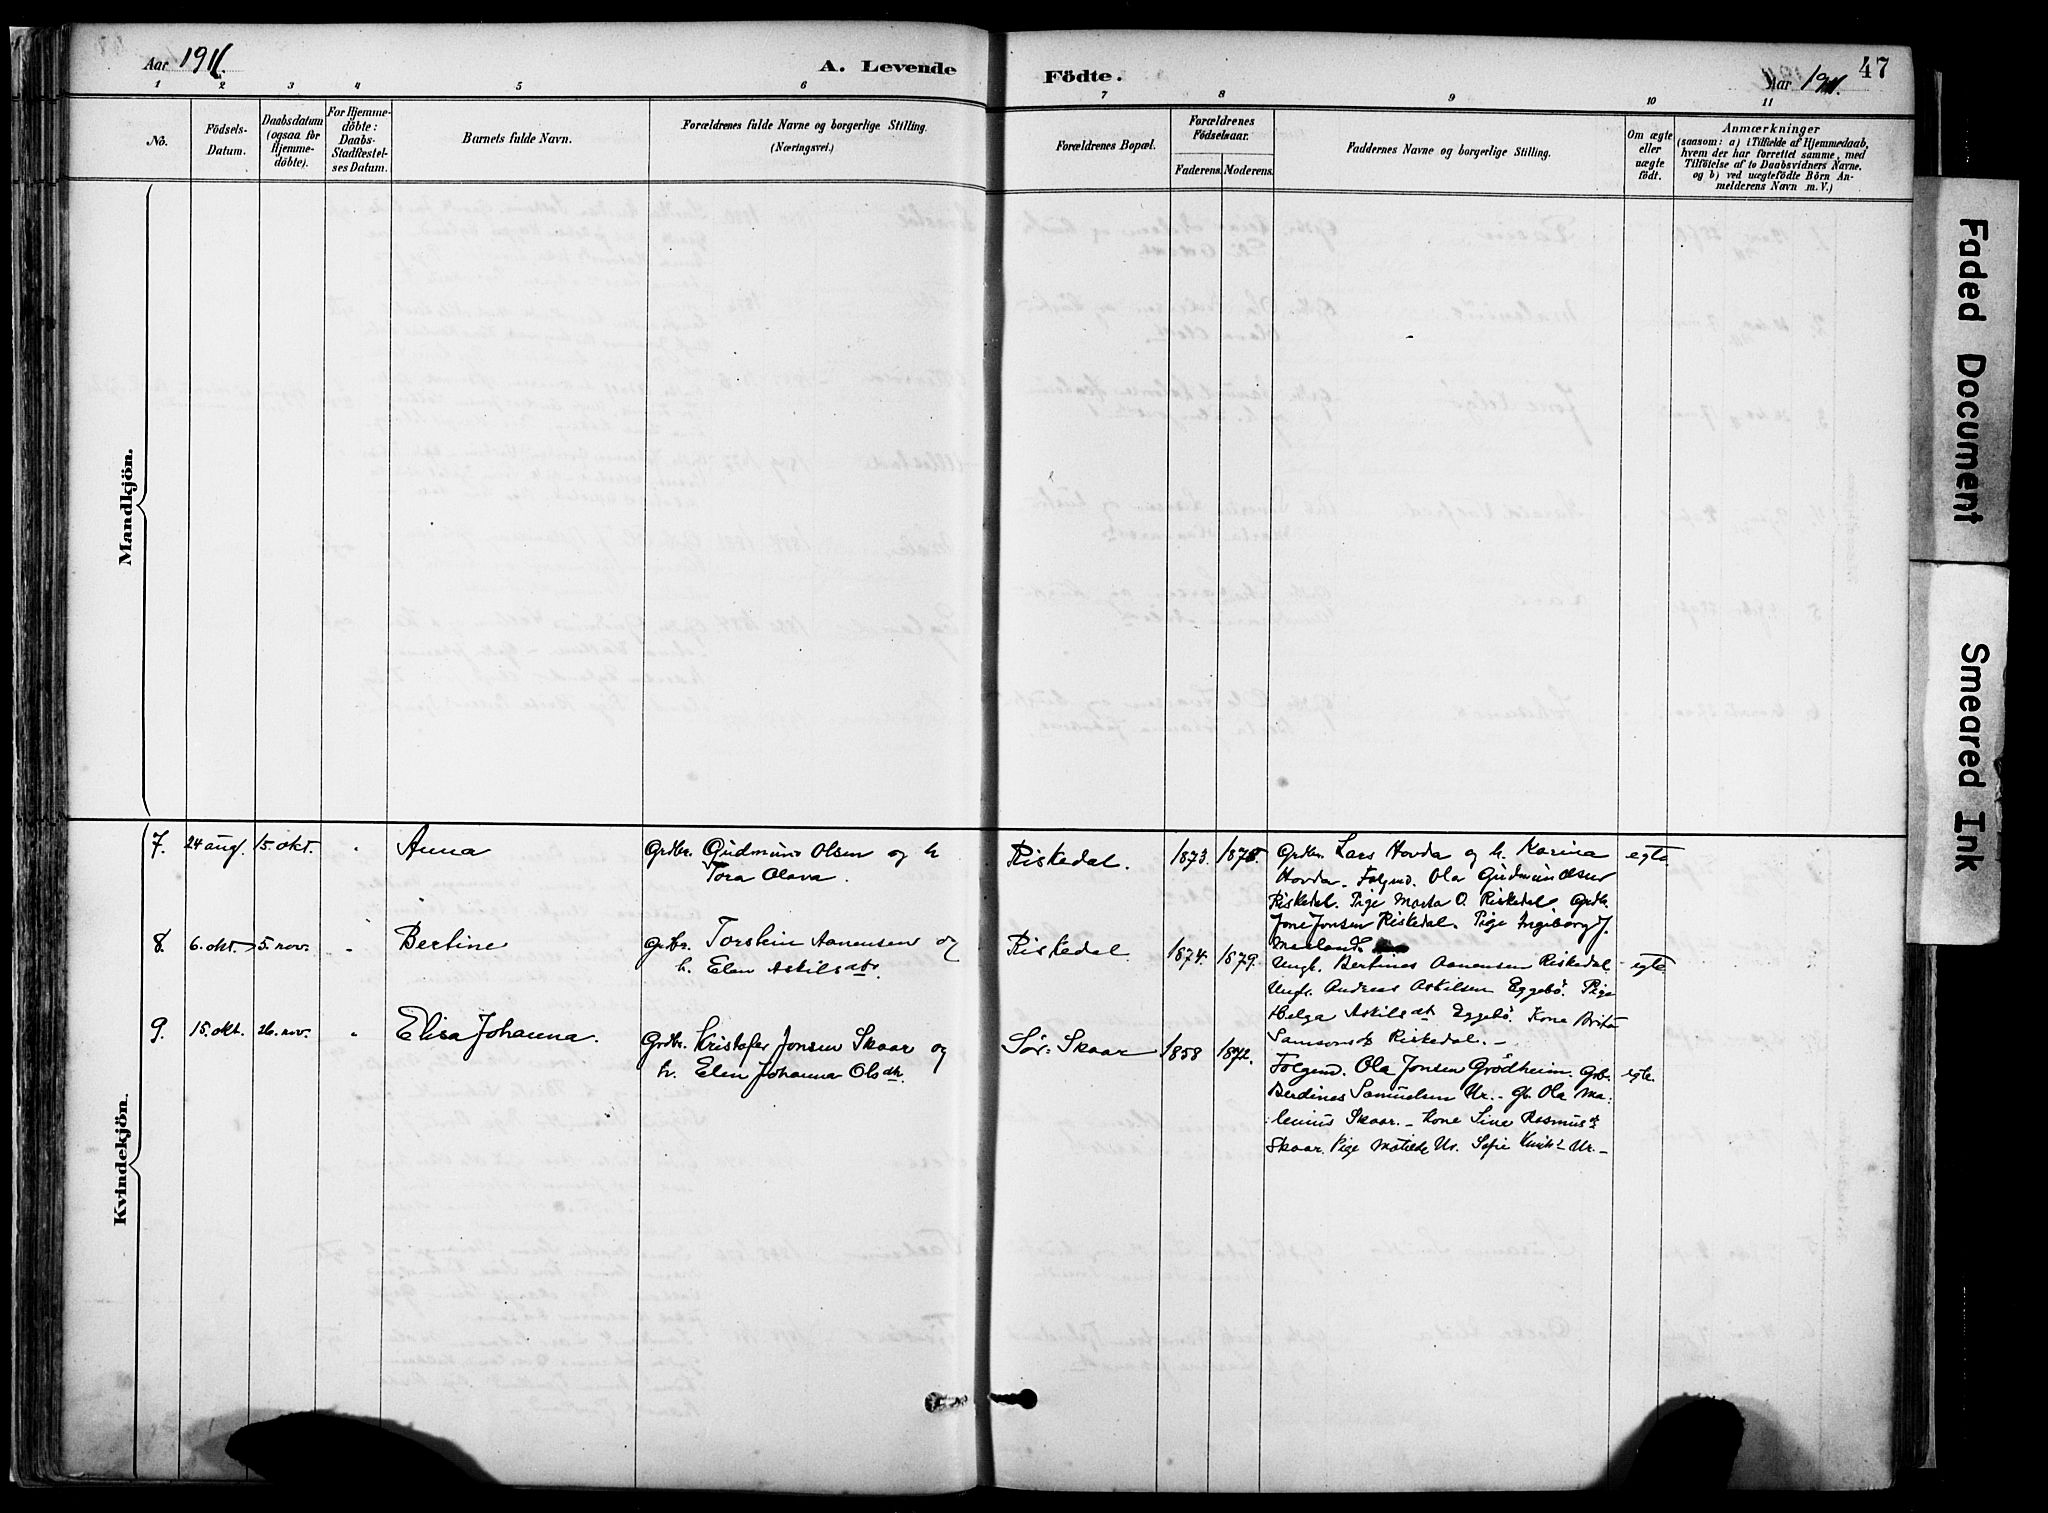 Aar 1911. A. Levende Födte. Aar 1911. 47
1 2 3 4 5 6 7 8 9 10 11
No.
Födsels-
Datum.
Daabsdatum
(ogsaa for
Hjemme-
döbte).
For Hjemme-
döbte:
Daabs-
Stadfæstel-
ses Datum.
Barnets fulde Navn.
Forældrenes fulde Navne og borgerlige Stilling.
(Næringsvei.)
Forældrenes Bopæl.
Forældrenes
Födselsaar.
Faderens. Moderens.
Faddernes Navne og borgerlige Stilling.
Om ægte
eller
uægte
födt.
Anmærkninger
(saasom: a) i Tilfælde af Hjemmedaab,
hvem der har forrettet samme, med
Tilföielse af to Daabsvidners Navne.
og b) ved uægtefödte Börn An-
melderens Navn m. V.)
Mandkjön.
Kvindekjön.
7. 24 aug. 15. okt. " Anna
Grdbr. Gudmund Olsen og h
Tora Olava.
Riskedal. 1873. 1875
Grdbr. Lars Hovda og h. Karina
Hovda. Folgmd. Ola Gudmundsen
Riskedal. Pige Marta O. Riskedal. Grdb.
Jone Jonsen Riskedal. Pige Ingeborg J.
Mæland.
egte
8. 6. okt. 5. nov. " Bertine
Grdbr. Torstein Aanensen og
h. Elen Askilsdtr.
Riskedal 1874. 1879.
Ungk. Bertines Aanensen Riskedal
Ungk. Andreas Askilsen Eggebö. Pige
Helga Askilsdt Eggebö. Kone Brita
Samsonsdt Riskedal. –
egte
9. 15. okt. 26. nov. " Elisa Johanna.
Grdbr. Kristofer Jonsen Skaar og
h. Elen Johanna Olsdtr.
Sör-Skaar 1858 1872.
Folgmd. Ola Jonsen Grödheim. Grb.
Berdines Samuelsen Ur. – Gb. Ola Ma-
lenius Skaar. – Kone Sine Rasmusdt
Skaar. Pige Matilde Ur. Sofie Ur. –
egte.
Faded Document
Smeared Ink